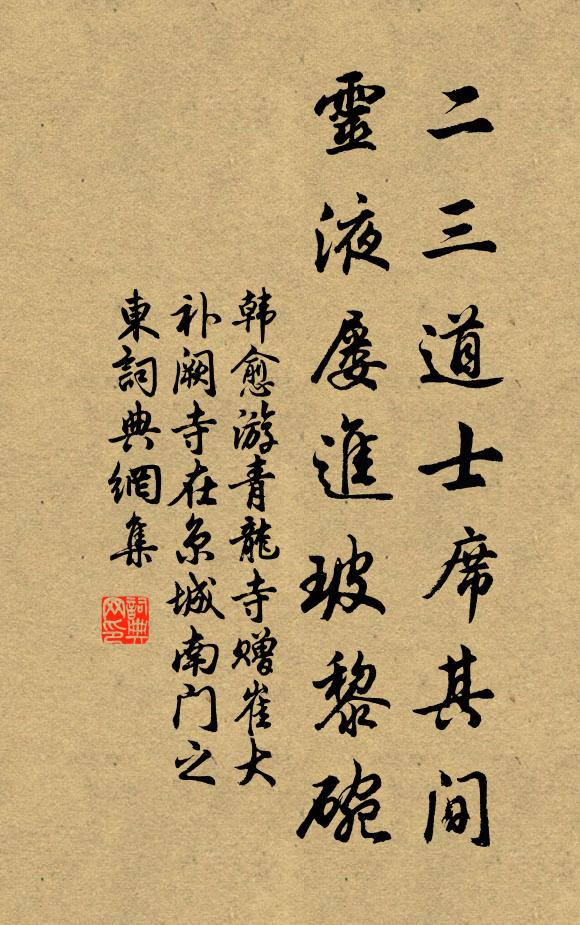 二三道士席其間
靈液屡進玻黎碗
韩愈游青龍寺赠崔大
补阙寺在京城南门之
東詞典網集
詞典网印